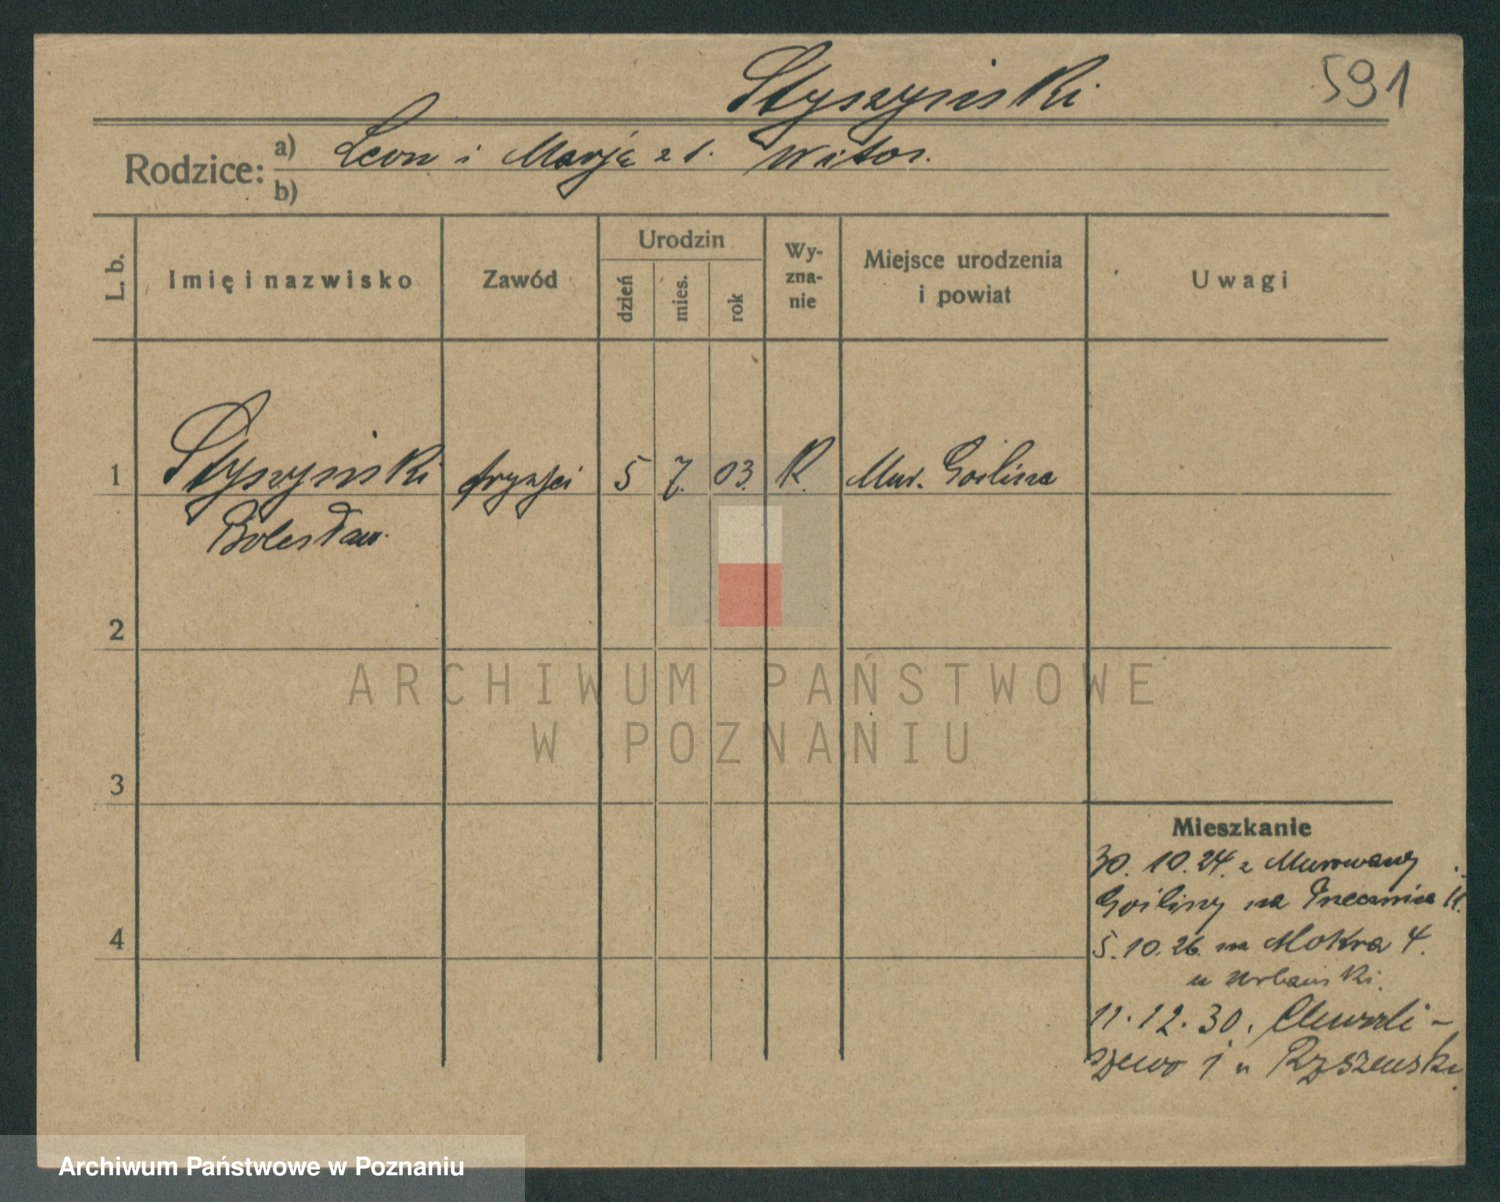 Styszyński
591
Rodzice: a) Leon i Marja z d. Witos.
b)
L. b.
Imię i nazwisko
Zawód
Urodzin
dzień
mies.
rok
Wy-
zna-
nie
Miejsce urodzenia
i powiat
Uwagi
1
Styszyński
Bolesław
fryzjer
5
7.
03.
R.
Mur. Goślina
2
ARCHIWUM PAŃSTWOWE
W POZNANIU
3
4
Mieszkanie
30. 10. 24. z Murowanej
Gośliny na 11.
5. 10. 26. na Mokra 4.
u Urbański.
11. 12. 30. Chwali-
szewo 1 u
Archiwum Państwowe w Poznaniu